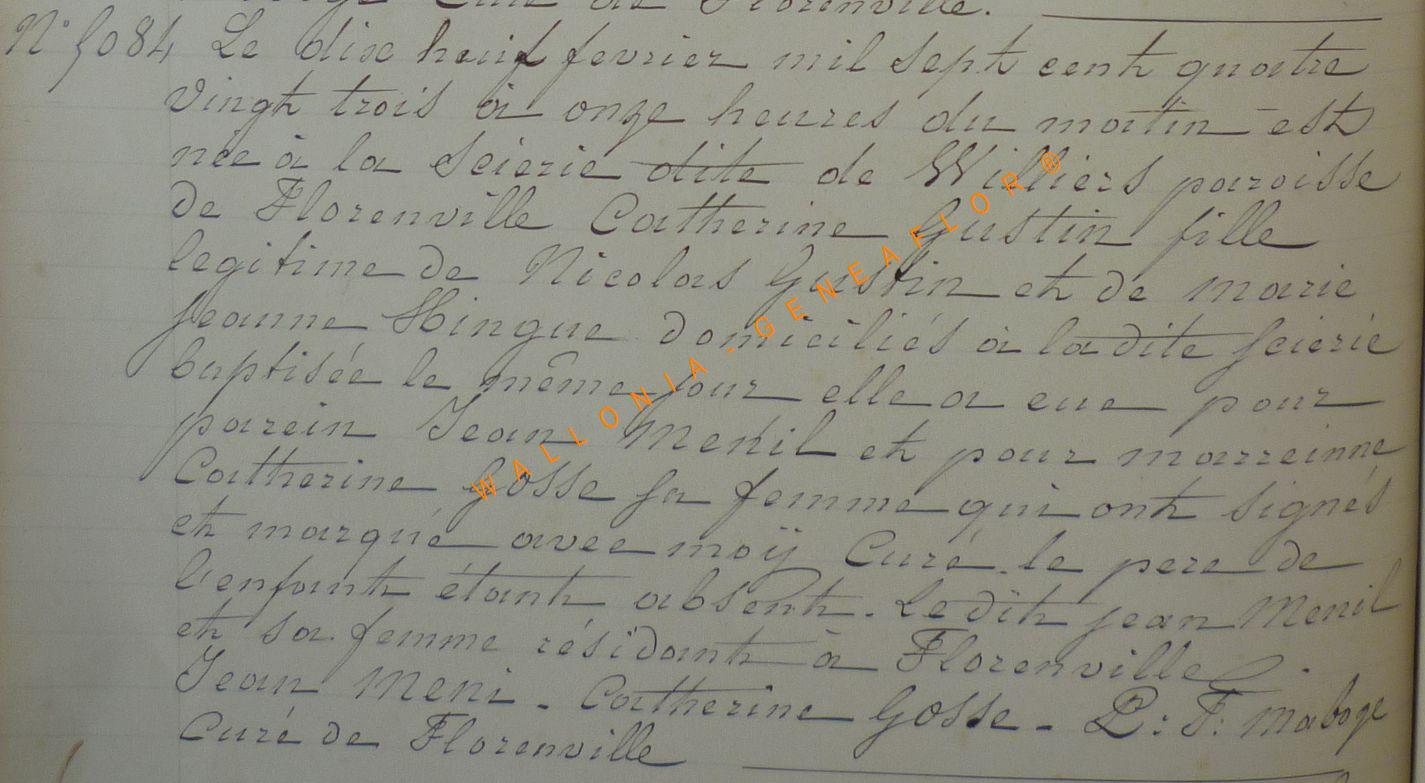 Curé de Florenville.
N° 5084 Le dix heuf fevrier mil sept cent quatre
vingt trois à onze heures du matin est
née à la scierie dite de Williers paroisse
de Florenville Catherine Gustin fille
legitime de Nicolas Gustin et de marie
jeanne Hingue domiciliés à la dite scierie
baptisée le même jour elle a eue pour
parein Jean Menil et pour marreinne
Catherine Gosse sa femme qui ont signés
et marqué avec moÿ Curé le pere de
l'enfant étant absent. Le dit jean Menil
et sa femme résidant à Florenville.
Jean Meni. Catherine Gosse. P: F: Maboge
Curé de Florenville
WALLONIA - GENEAFLOR®